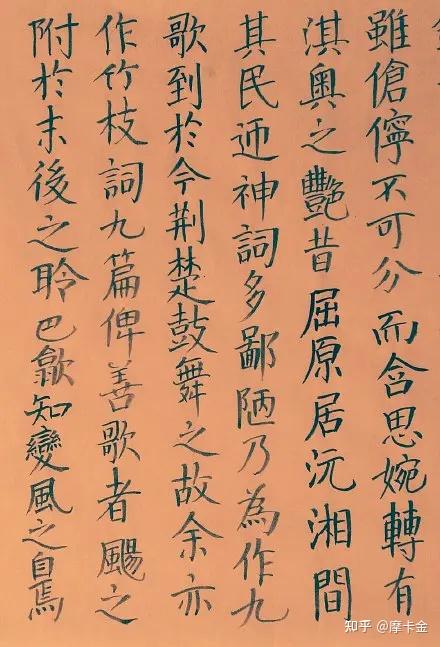 雖傖儜不可分而含思婉轉有
淇奧之豔昔屈原居沅湘間
其民迎神詞多鄙陋乃為作九
歌到於今荊楚鼓舞之故余亦
作竹枝詞九篇俾善歌者颺之
附於末後之聆巴歈知變風之自焉
知乎 @摩卡金